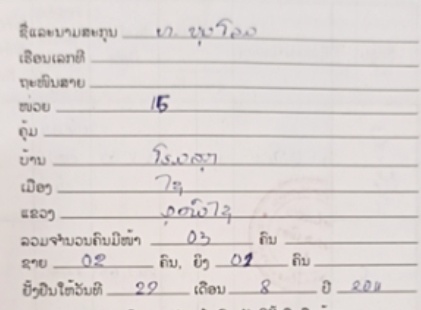 ຊື່ແລະນາມສະກຸນ ທ. ບຸນໂຮມ
ເຮືອນເລກທີ
ຖະໜົນສາຍ
ໜ່ວຍ 15
ຄຸ້ມ
ບ້ານ
ເມືອງ ໄຊ
ແຂວງ ອຸດົມໄຊ
ລວມຈຳນວນຄົນມີໜ້າ 03 ຄົນ
ຊາຍ 02 ຄົນ, ຍິງ 01 ຄົນ
ຢັ້ງຢືນໃຫ້ວັນທີ 29 ເດືອນ 8 ປີ